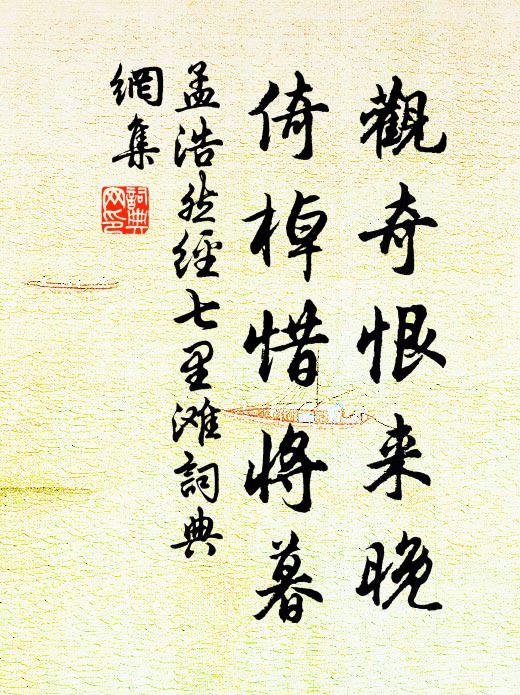 觀奇恨来晚
倚棹惜将暮
孟浩然經七里滩詞典
網集
詞典网印